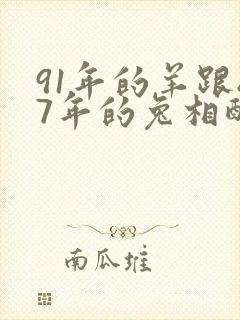 91年的羊跟
7年的兔相配
南瓜堆